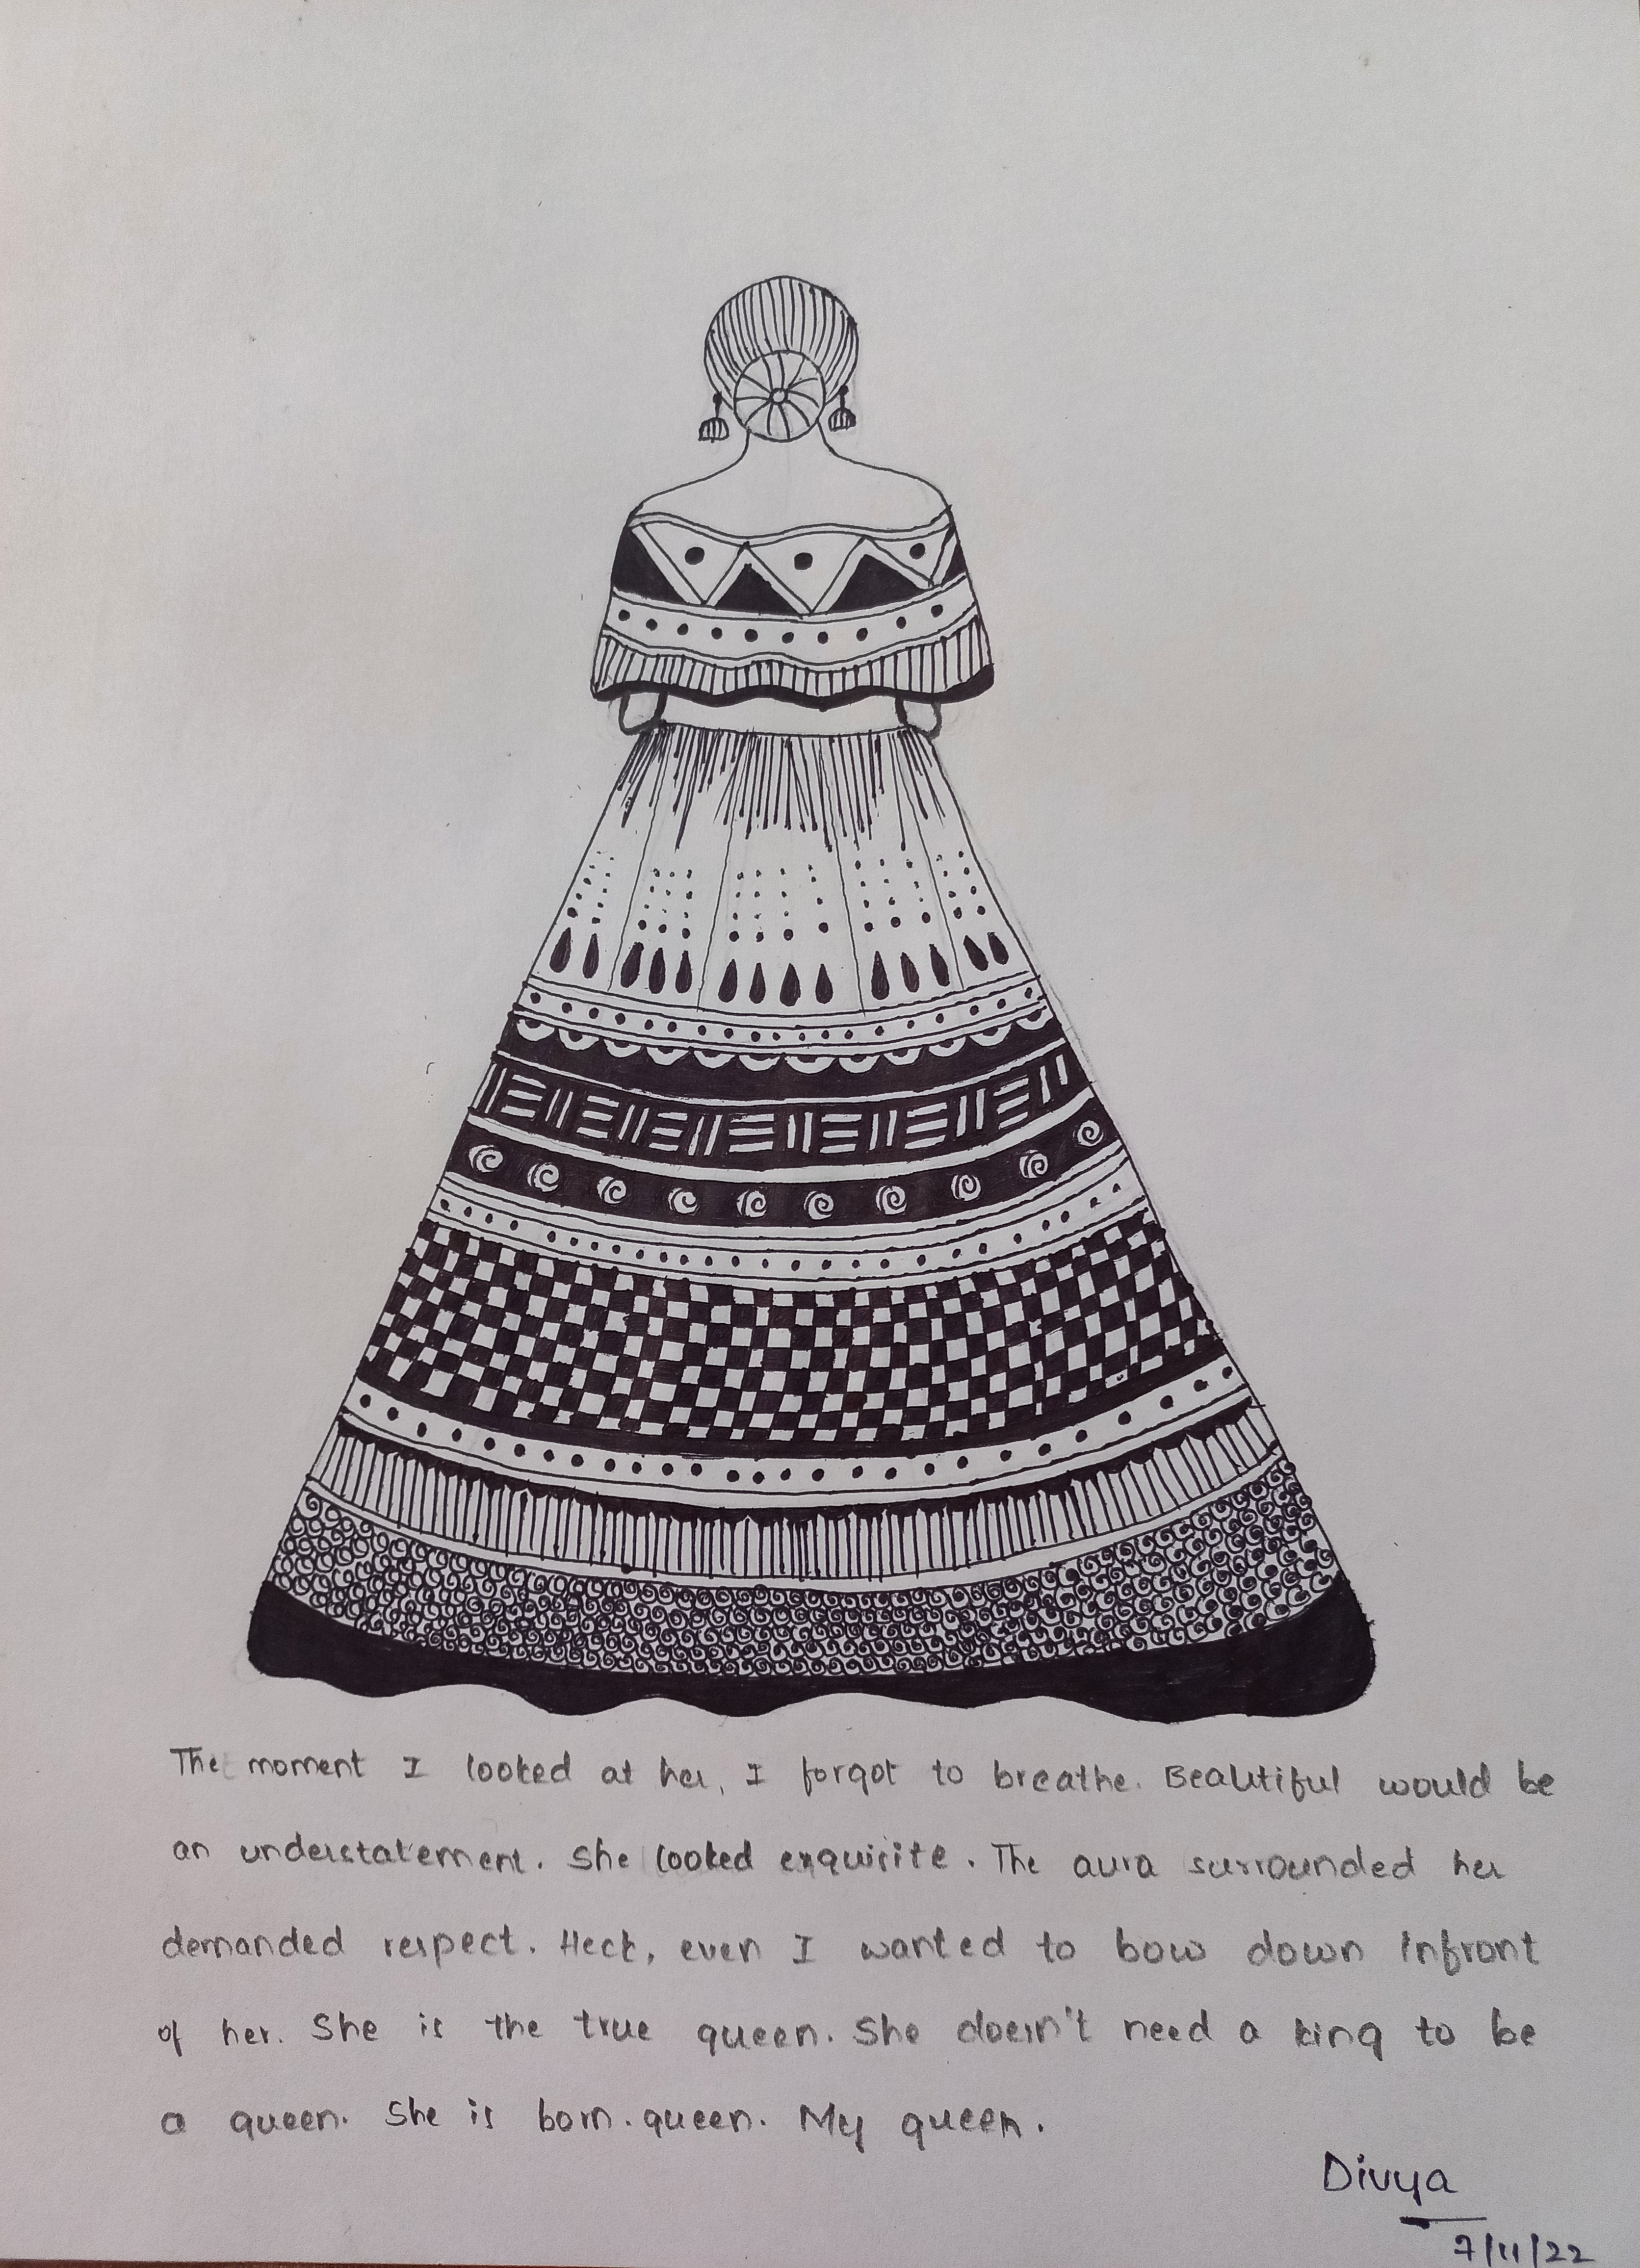 The moment I looked at her, I forgot to breathe. Beautiful would be
an understatement. She looked exquisite. The aura surrounded her
demanded respect. Heck, even I wanted to bow down infront
of her. She is the true queen. She doesn't need a king to be
a queen. She is born. queen. My queen.
Divya
7/11/22